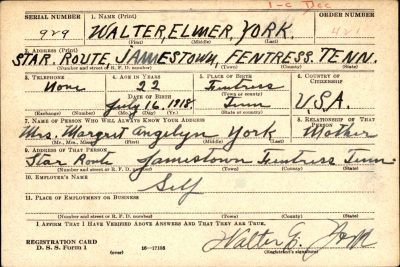 1-C Dec
SERIAL NUMBER 1. NAME (Print) ORDER NUMBER
929 WALTER, ELMER, YORK.
(First) (Middle) (Last)
2. ADDRESS (Print)
STAR. ROUTE, JAMESTOWN, FENTRESS, TENN.
(Number and street or R. F. D. number) (Town) (County) (State)
3. TELEPHONE 4. AGE IN YEARS 5. PLACE OF BIRTH 6. COUNTRY OF CITIZENSHIP
None 22 Fentress
DATE OF BIRTH (Town or county)
July 16, 1918. Tenn U.S.A.
(Exchange) (Number) (Mo.) (Day) (Yr.) (State or country)
7. NAME OF PERSON WHO WILL ALWAYS KNOW YOUR ADDRESS 8. RELATIONSHIP OF THAT PERSON
Mrs. Margret Angelyn York Mother
(Mr., Mrs., Miss) (First) (Middle) (Last)
9. ADDRESS OF THAT PERSON
Star Route Jamestown Fentress Tenn.
(Number and street or R. F. D. number) (Town) (County) (State)
10. EMPLOYER'S NAME
Self
11. PLACE OF EMPLOYMENT OR BUSINESS
(Number and street or R. F. D. number) (Town) (County) (State)
I AFFIRM THAT I HAVE VERIFIED ABOVE ANSWERS AND THAT THEY ARE TRUE.
REGISTRATION CARD
D. S. S. Form 1 (over) 16—17105 Walter E. York
(Registrant's signature)